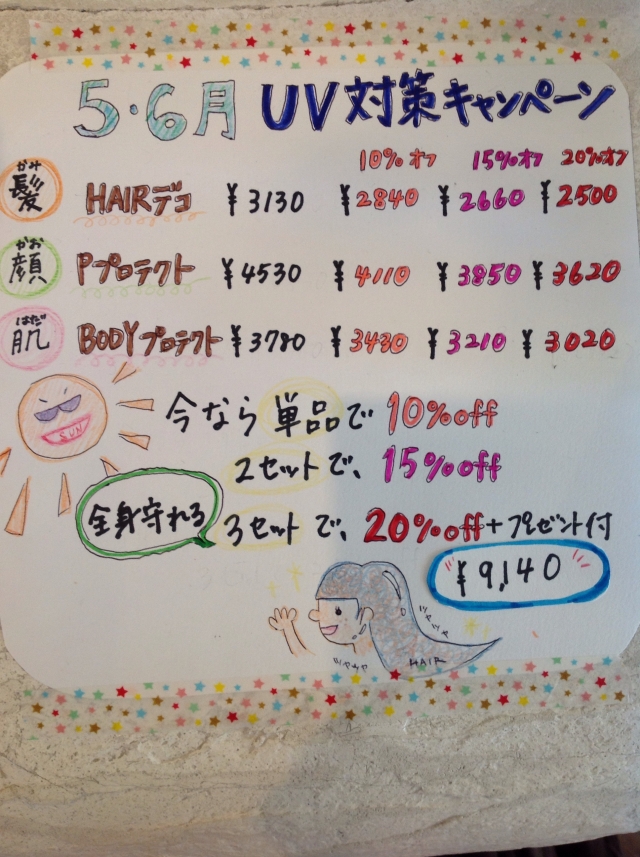 5・6月 UV対策キャンペーン
10%オフ 15%オフ 20%オフ
かみ
髪 HAIRデコ ¥3130 ¥2840 ¥2660 ¥2500
かお
顔 Pプロテクト ¥4530 ¥4110 ¥3850 ¥3620
はだ
肌 BODYプロテクト ¥3780 ¥3430 ¥3210 ¥3020
今なら単品で10%off
SUN
2セットで、15%off
全身守れる 3セットで、20%off+プレゼント付
¥9,140
ツヤツヤ
ツヤツヤ HAIR